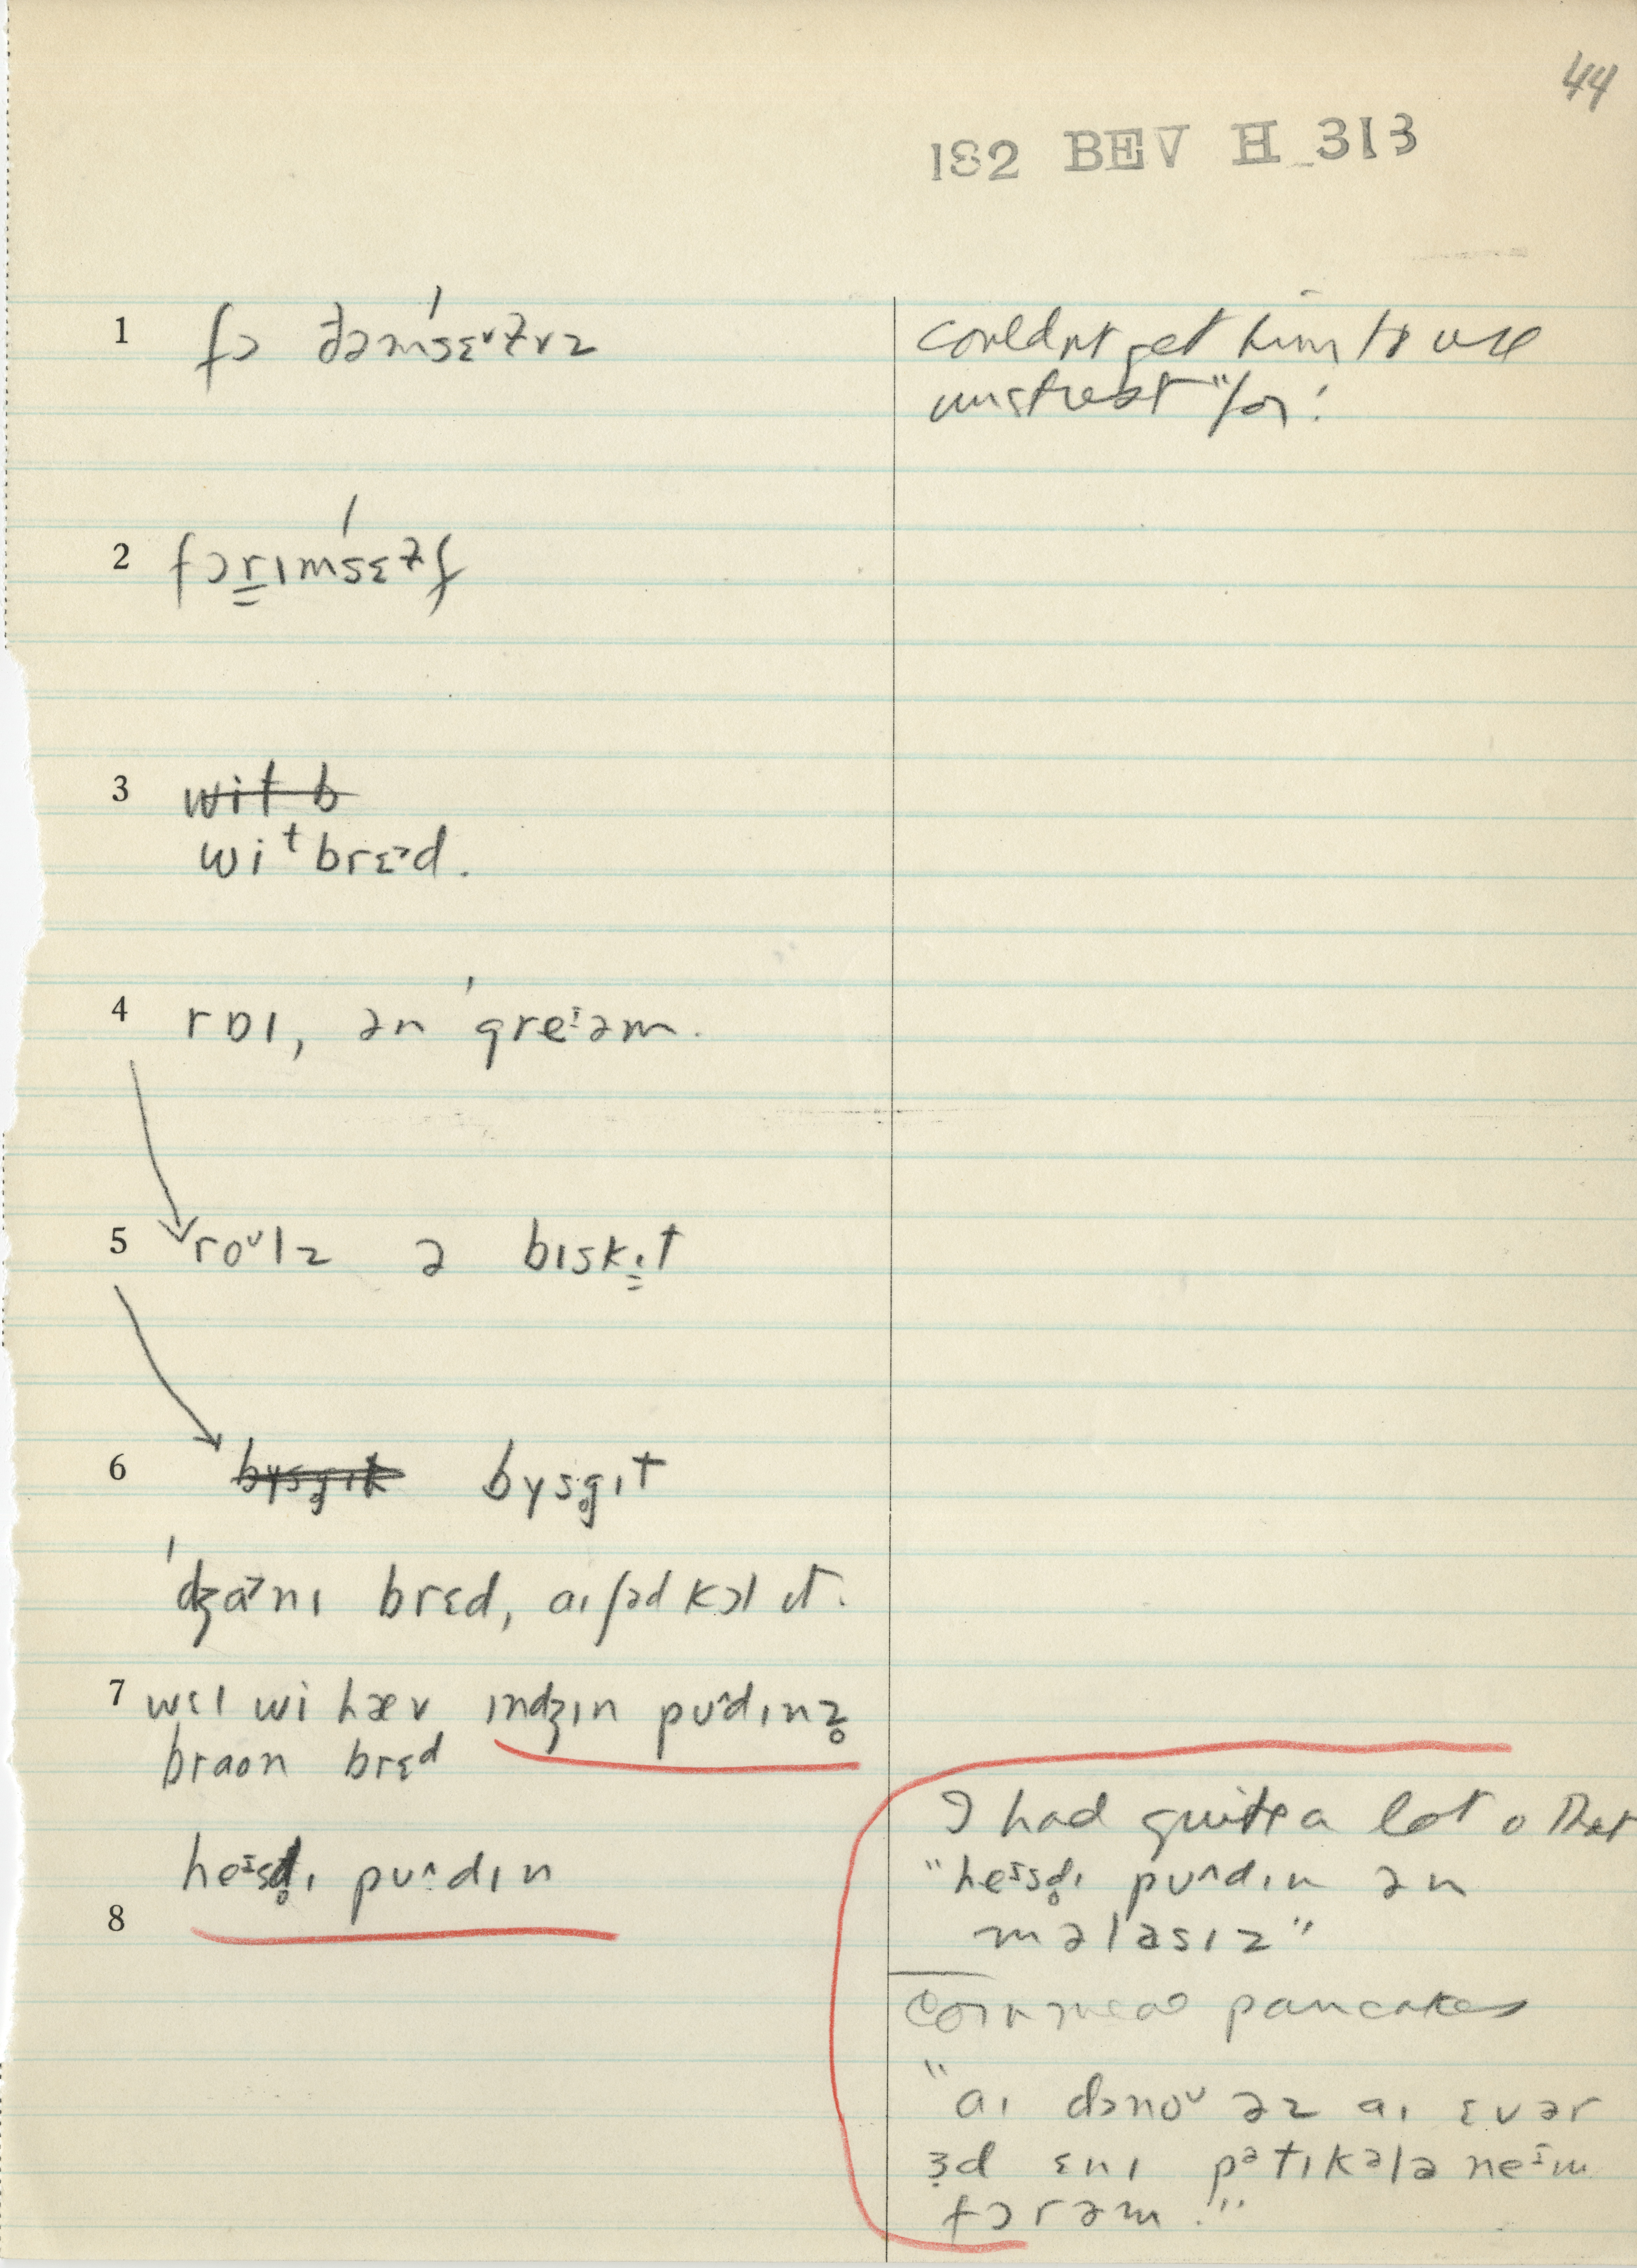 44
182 BEV H 313
1 fɔ ðəmsɛᵛɫvz
couldn't get him to use
unstrest "for".
2 fɔrɪmsɛɫf
3 wit b
wiᵗbrɛ˃d.
4 rɒɪ, ən greᶦəm.
5 roᶷlz ə bɪskɪt
6 bysg̥ɪt bysg̥ɪt
ʤa˃nɪ brɛd, aɪʃəd kɔl ɪt.
7 wɛl wi hæv ɪnʤɪn pʊ^dɪnz̥
braon brɛᵈ
heᶦsd̥ɪ pʊ^dɪn
8
I had quite a lot o that
"heᶦsd̥ɪ pʊ^dɪn ən
məlasɪz"
Corn meal pancakes
"aɪ dɔnoᶷ əz aɪ ɛvər
ɜd ɛnɪ pətɪkələ neᶦm
fɔrəm."